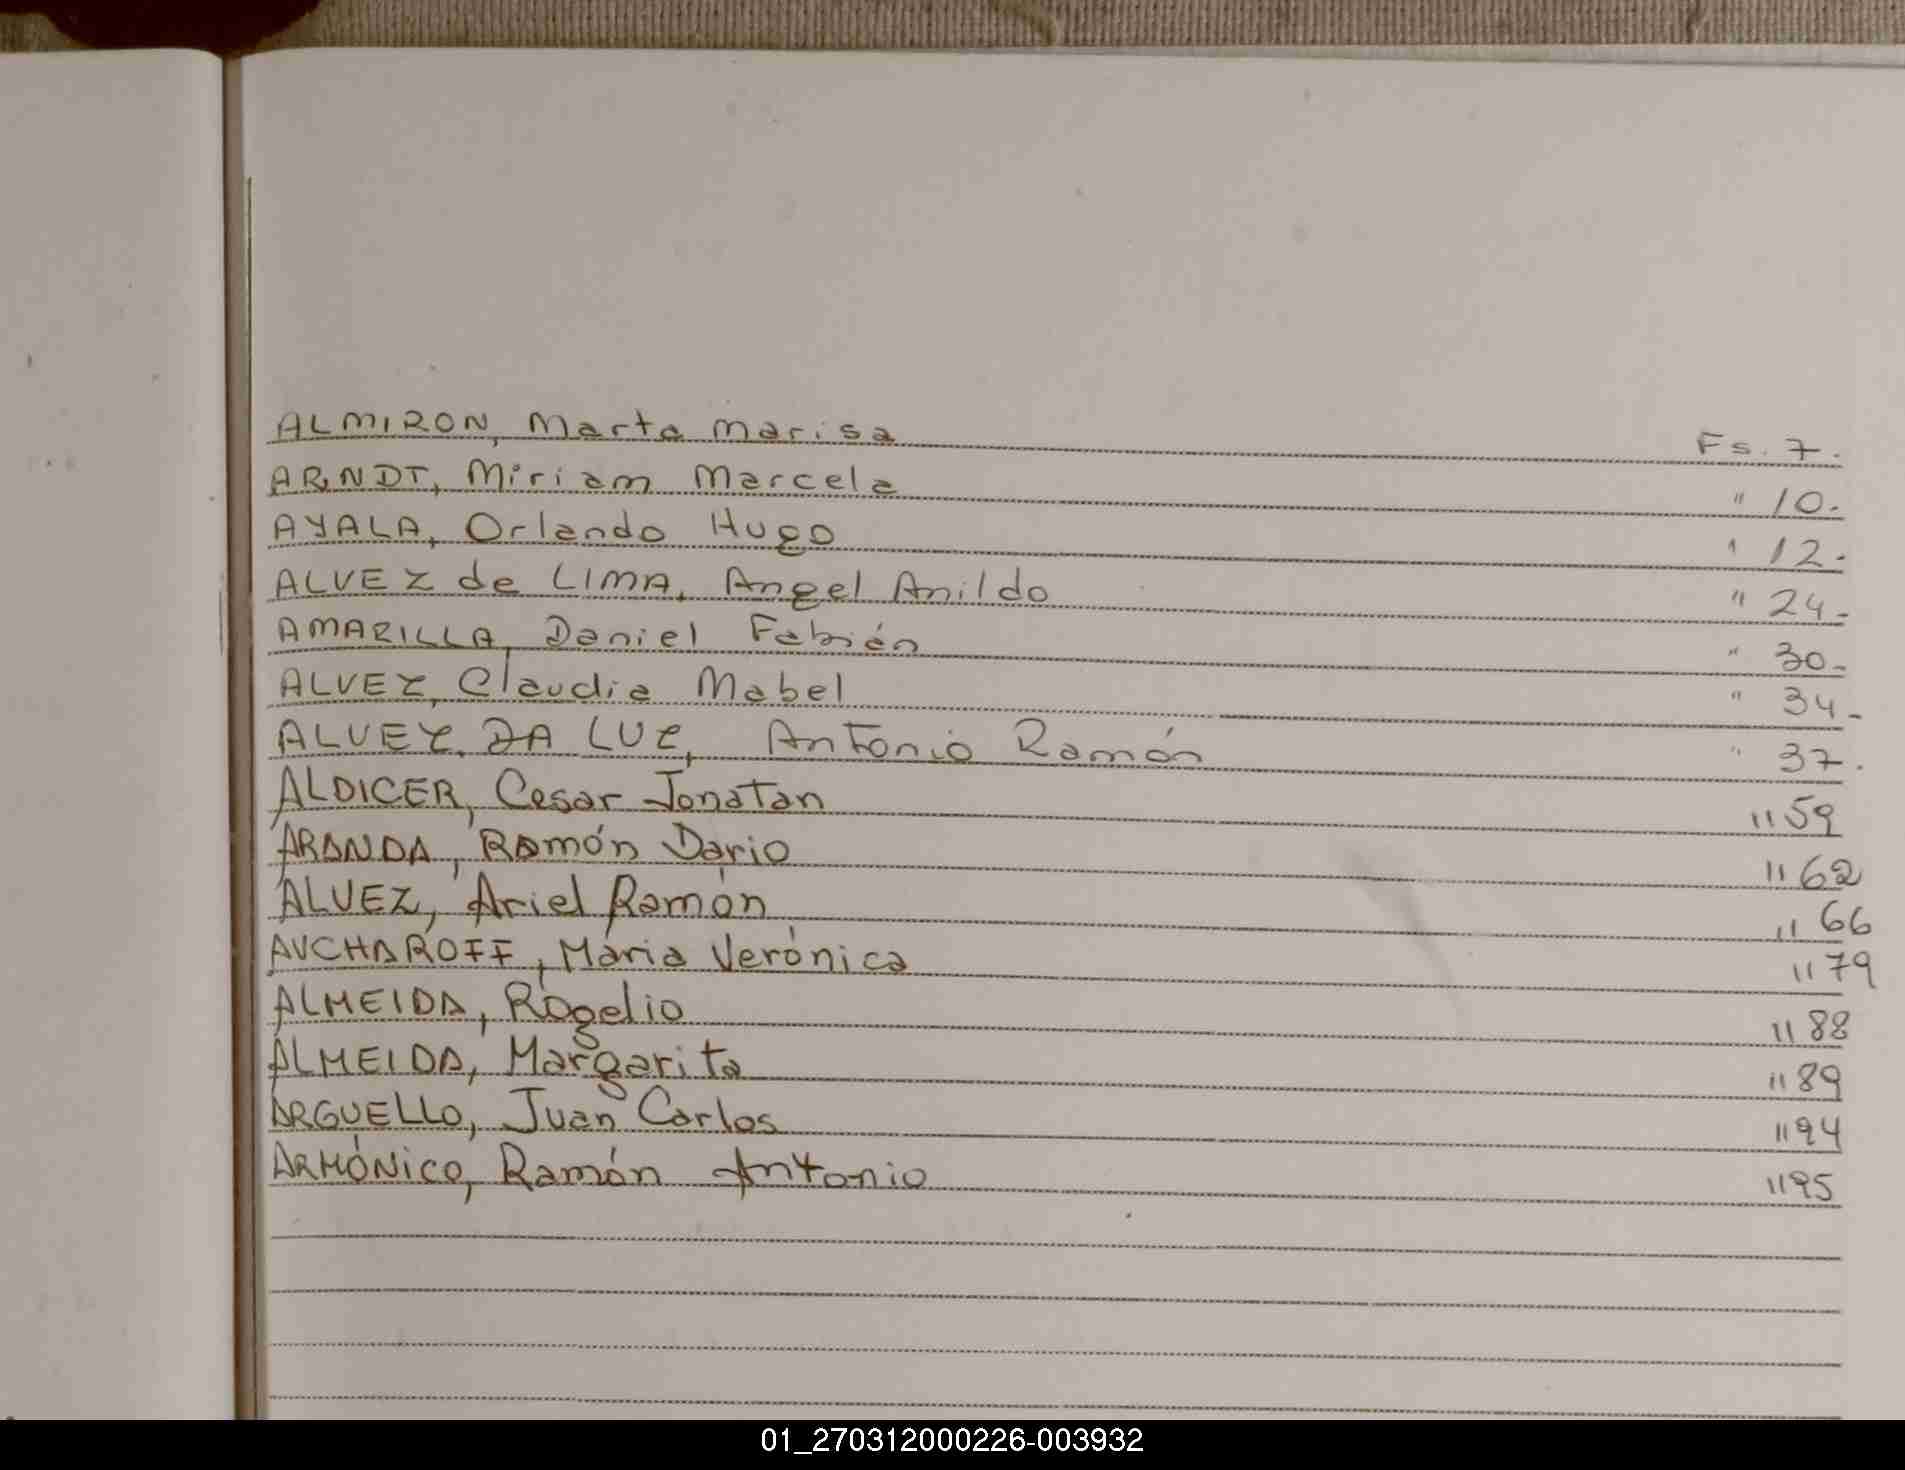 ALMIRON, Marta Marisa Fs. 7.
ARNDT, Miriam Marcela " 10.
AYALA, Orlando Hugo " 12.
ALVEZ de LIMA, Angel Anildo " 24.
AMARILLA, Daniel Fabián " 30.
ALVEZ, Claudia Mabel " 34.
ALVEZ DA LUZ, Antonio Ramón " 37.
ALDICER, Cesar Jonatan " 59
ARANDA, Ramón Dario " 62
ALVEZ, Ariel Ramón " 66
AUCHAROFF, María Verónica " 79
ALMEIDA, Rogelio " 88
ALMEIDA, Margarita " 89
ARGUELLO, Juan Carlos " 94
ARMÓNICO, Ramón Antonio " 95
01_270312000226-003932